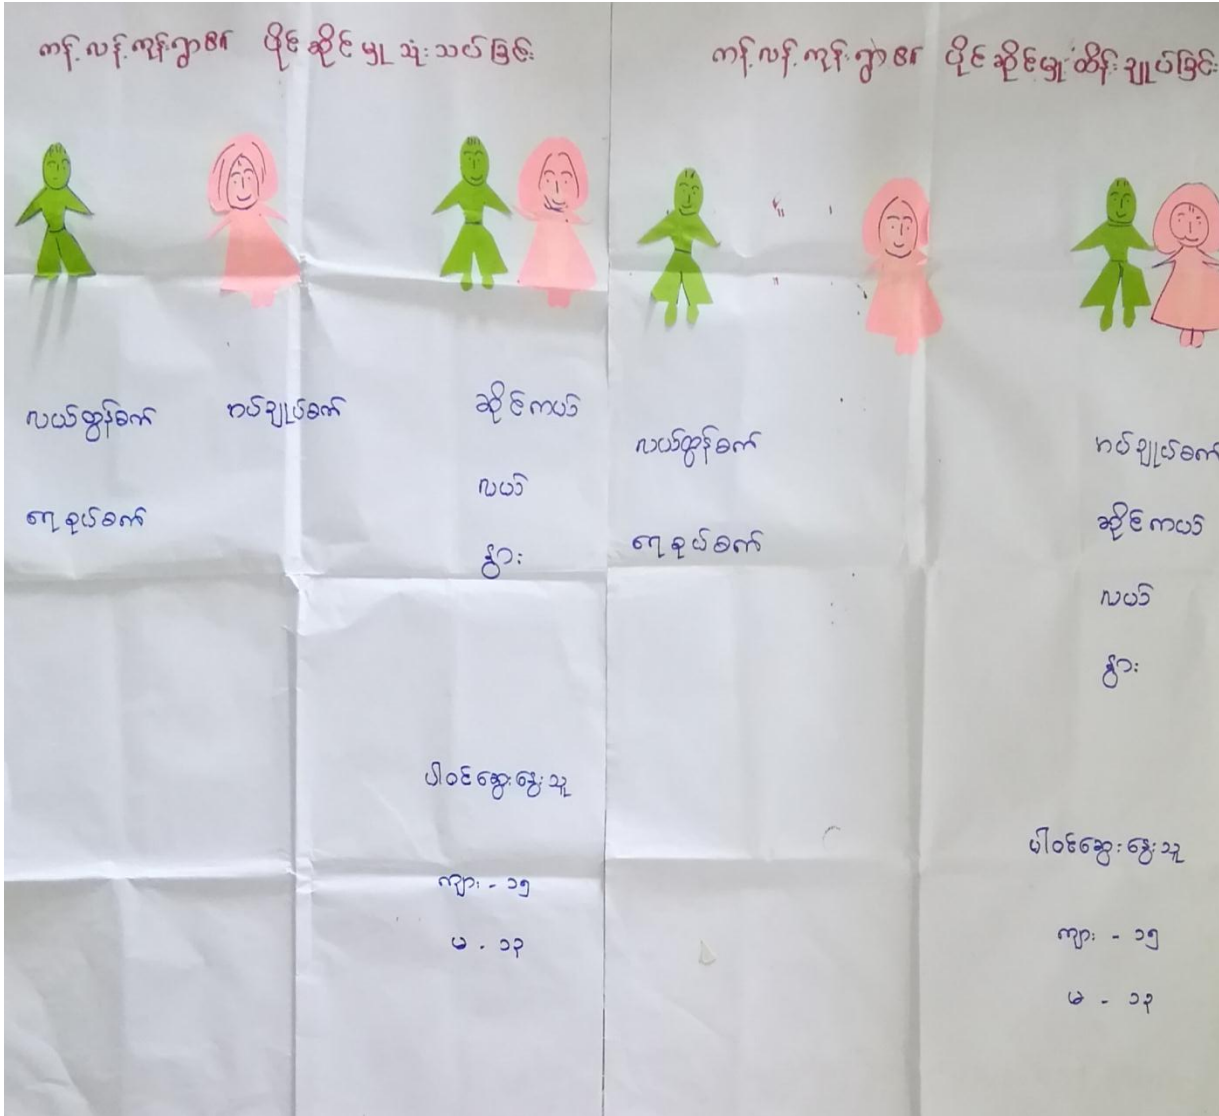 ကန့်လန့်ကုန်းရွာ၏ ပိုင်ဆိုင်မှုသုံးသပ်ခြင်း
လယ်ထွန်စက်
အပ်ချုပ်စက်
ဆိုင်ကယ်
လယ်
ရေစုပ်စက်
နွား
ပါဝင်ဆွေးနွေးသူ
ကျား - ၁၅
မ - ၁၃
ကန့်လန့်ကုန်းရွာ၏ ပိုင်ဆိုင်မှုထိန်းချုပ်ခြင်း
လယ်ထွန်စက်
အပ်ချုပ်စက်
ရေစုပ်စက်
ဆိုင်ကယ်
လယ်
နွား
ပါဝင်ဆွေးနွေးသူ
ကျား - ၁၅
မ - ၁၃